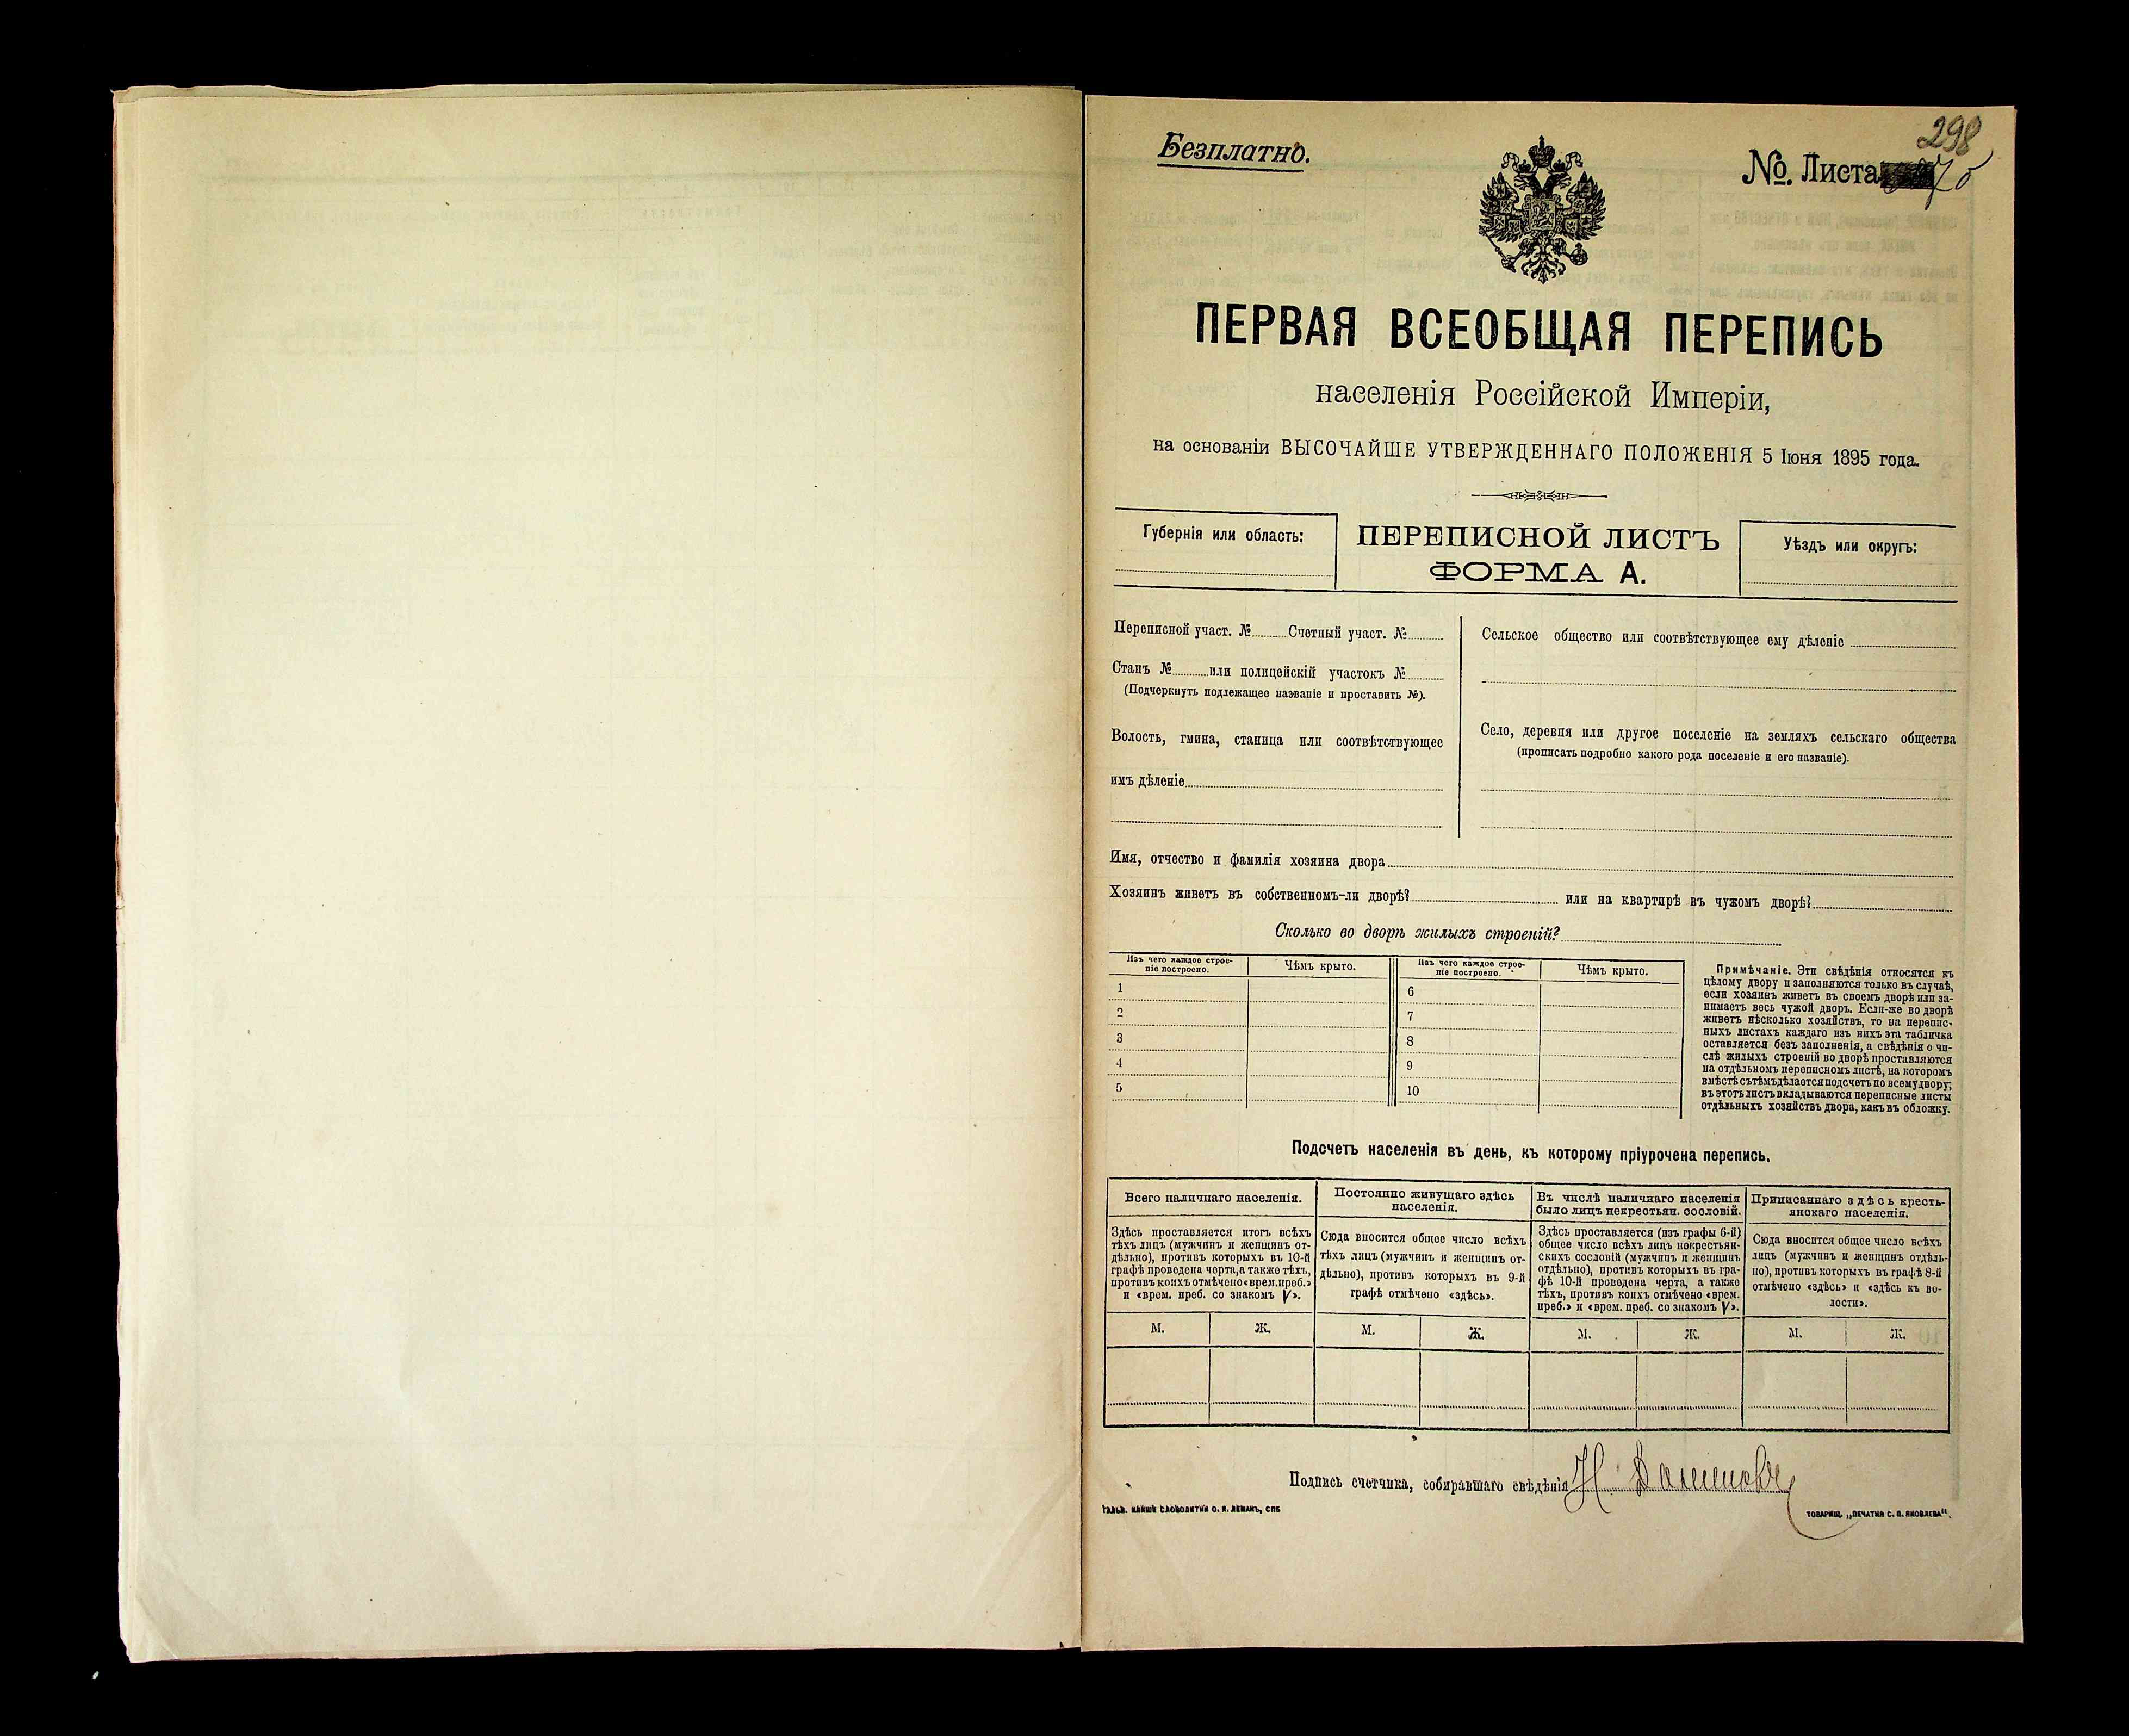 298
Безплатно.
№. Листа
ПЕРВАЯ ВСЕОБЩАЯ ПЕРЕПИСЬ
населенія Россійской Имперіи,
на основаніи ВЫСОЧАЙШЕ УТВЕРЖДЕННАГО ПОЛОЖЕНІЯ 5 Іюня 1895 года.
Губернія или область:
ПЕРЕПИСНОЙ ЛИСТЪ
ФОРМА А.
Уѣздъ или округъ:
Переписной участ. № Счетный участ. №
Станъ № или полицейскій участокъ №
(Подчеркнуть подлежащее названіе и проставить №).
Волость, гмина, станица или соотвѣтствующее
имъ дѣленіе
Сельское общество или соотвѣтствующее ему дѣленіе
Село, деревня или другое поселеніе на земляхъ сельскаго общества
(прописать подробно какого рода поселеніе и его названіе).
Имя, отчество и фамилія хозяина двора
Хозяинъ живетъ въ собственномъ-ли дворѣ? или на квартирѣ въ чужомъ дворѣ?
Сколько во дворѣ жилыхъ строеній?
Изъ чего каждое строе-
ніе построено.
Чѣмъ крыто.
1
2
3
4
5
Изъ чего каждое строе-
ніе построено.
Чѣмъ крыто.
6
7
8
9
10
Примѣчаніе. Эти свѣдѣнія относятся къ
цѣлому двору и заполняются только въ случаѣ,
если хозяинъ живетъ въ своемъ дворѣ или за-
нимаетъ весь чужой дворъ. Если-же во дворѣ
живетъ нѣсколько хозяйствъ, то на перепис-
ныхъ листахъ каждаго изъ нихъ эта табличка
оставляется безъ заполненія, а свѣдѣнія о чи-
слѣ жилыхъ строеній во дворѣ проставляются
на отдѣльномъ переписномъ листѣ, на которомъ
вмѣстѣ съ тѣмъ дѣлается подсчетъ по всему двору;
въ этотъ листъ вкладываются переписные листы
отдѣльныхъ хозяйствъ двора, какъ въ обложку.
Подсчетъ населенія въ день, къ которому пріурочена перепись.
Всего наличнаго населенія.
Здѣсь проставляется итогъ всѣхъ
тѣхъ лицъ (мужчинъ и женщинъ от-
дѣльно), противъ которыхъ въ 10-й
графѣ проведена черта, а также тѣхъ,
противъ коихъ отмѣчено «врем. преб.»
и «врем. преб. со знакомъ V».
М. Ж.
Постоянно живущаго здѣсь
населенія.
Сюда вносится общее число всѣхъ
тѣхъ лицъ (мужчинъ и женщинъ от-
дѣльно), противъ которыхъ въ 9-й
графѣ отмѣчено «здѣсь».
М. Ж.
Въ числѣ наличнаго населенія
было лицъ некрестьян. сословій.
Здѣсь проставляется (изъ графы 6-й)
общее число всѣхъ лицъ некрестьян-
скихъ сословій (мужчинъ и женщинъ
отдѣльно), противъ которыхъ въ гра-
фѣ 10-й проведена черта, а также
тѣхъ, противъ коихъ отмѣчено «врем.
преб.» и «врем. преб. со знакомъ V».
М. Ж.
Приписаннаго здѣсь кресть-
янскаго населенія.
Сюда вносится общее число всѣхъ
лицъ (мужчинъ и женщинъ отдѣль-
но), противъ которыхъ въ графѣ 8-й
отмѣчено «здѣсь» и «здѣсь къ во-
лости».
М. Ж.
Подпись счетчика, собиравшаго свѣдѣнія Н.
СЛОВОЛИТНИ О. И. ЛЕМАНЪ, СПБ
ТОВАРИЩ. „ПЕЧАТНЯ С. П. ЯКОВЛЕВА".